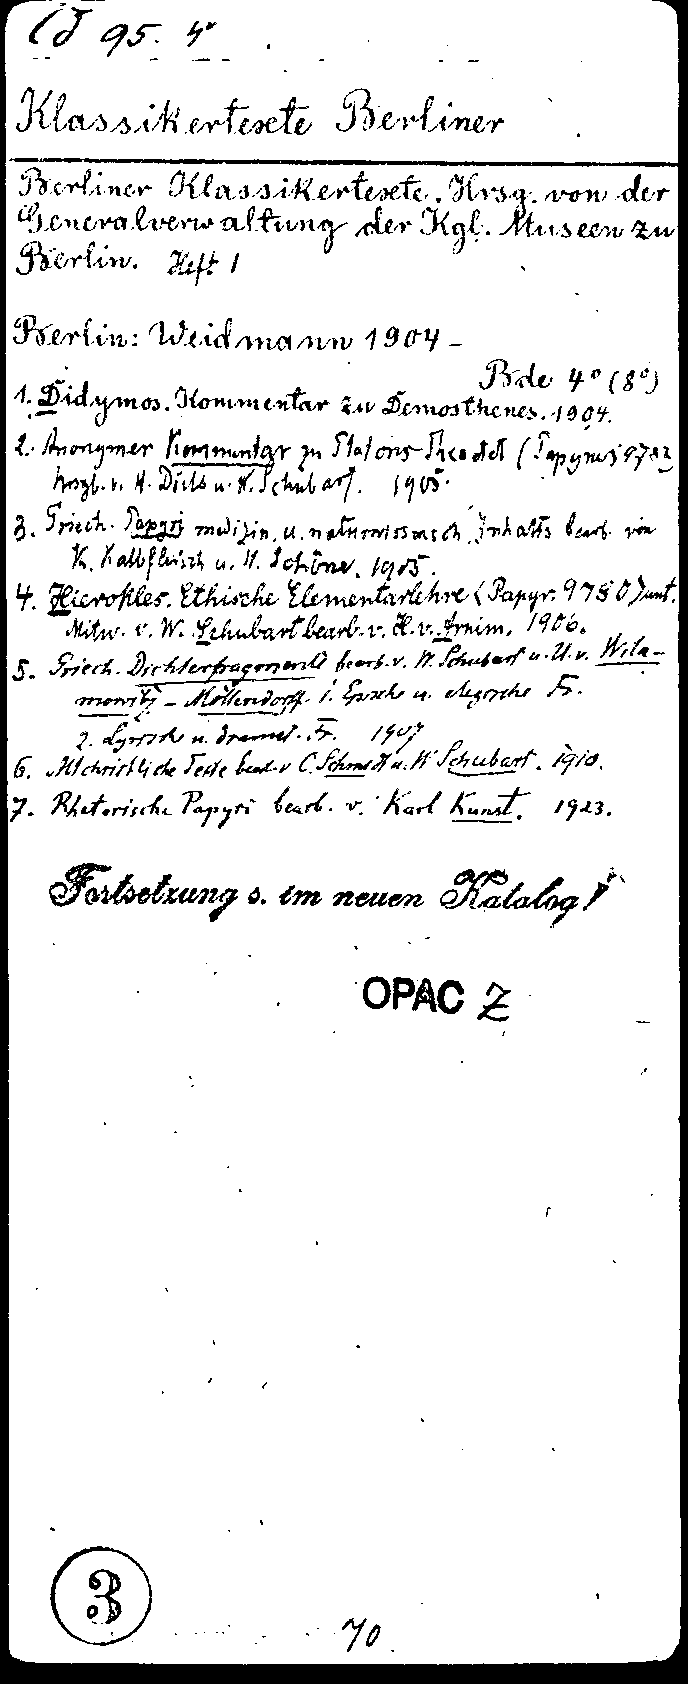 Cd 95. 4°
Klassikertexte Berliner
Berliner Klassikertexte. Hrsg. von der
Generalverwaltung der Kgl. Museen zu
Berlin. Heft 1
Berlin: Weidmann 1904 –
Bde 4° (8°)
1. Didymos. Kommentar zu Demosthenes. 1904.
2. Anonymer Kommentar zu Platons Theaetet (Papyrus 9782
hrsgb. v. H. Diels u. W. Schubart. 1905.
3. Griech. Papyri medizin. u. naturwissensch. Inhalts bearb. von
K. Kalbfleisch u. H. Schöne. 1905.
4. Hierokles. Ethische Elementarlehre (Papyr. 9780) unt.
Mitw. v. W. Schubart bearb. v. H. v. Arnim. 1906.
5. Griech. Dichterfragmente bearb. v. W. Schubart u. U. v. Wila-
mowitz-Möllendorff. 1. Epische u. elegische Fr.
2. Lyrische u. dramat. Fr. 1907
6. Altchristliche Texte bearb. v C. Schmidt u. W Schubart. 1910.
7. Rhetorische Papyri bearb. v. Karl Kunst. 1923.
Fortsetzung s. im neuen Katalog!
OPAC Z
3
70